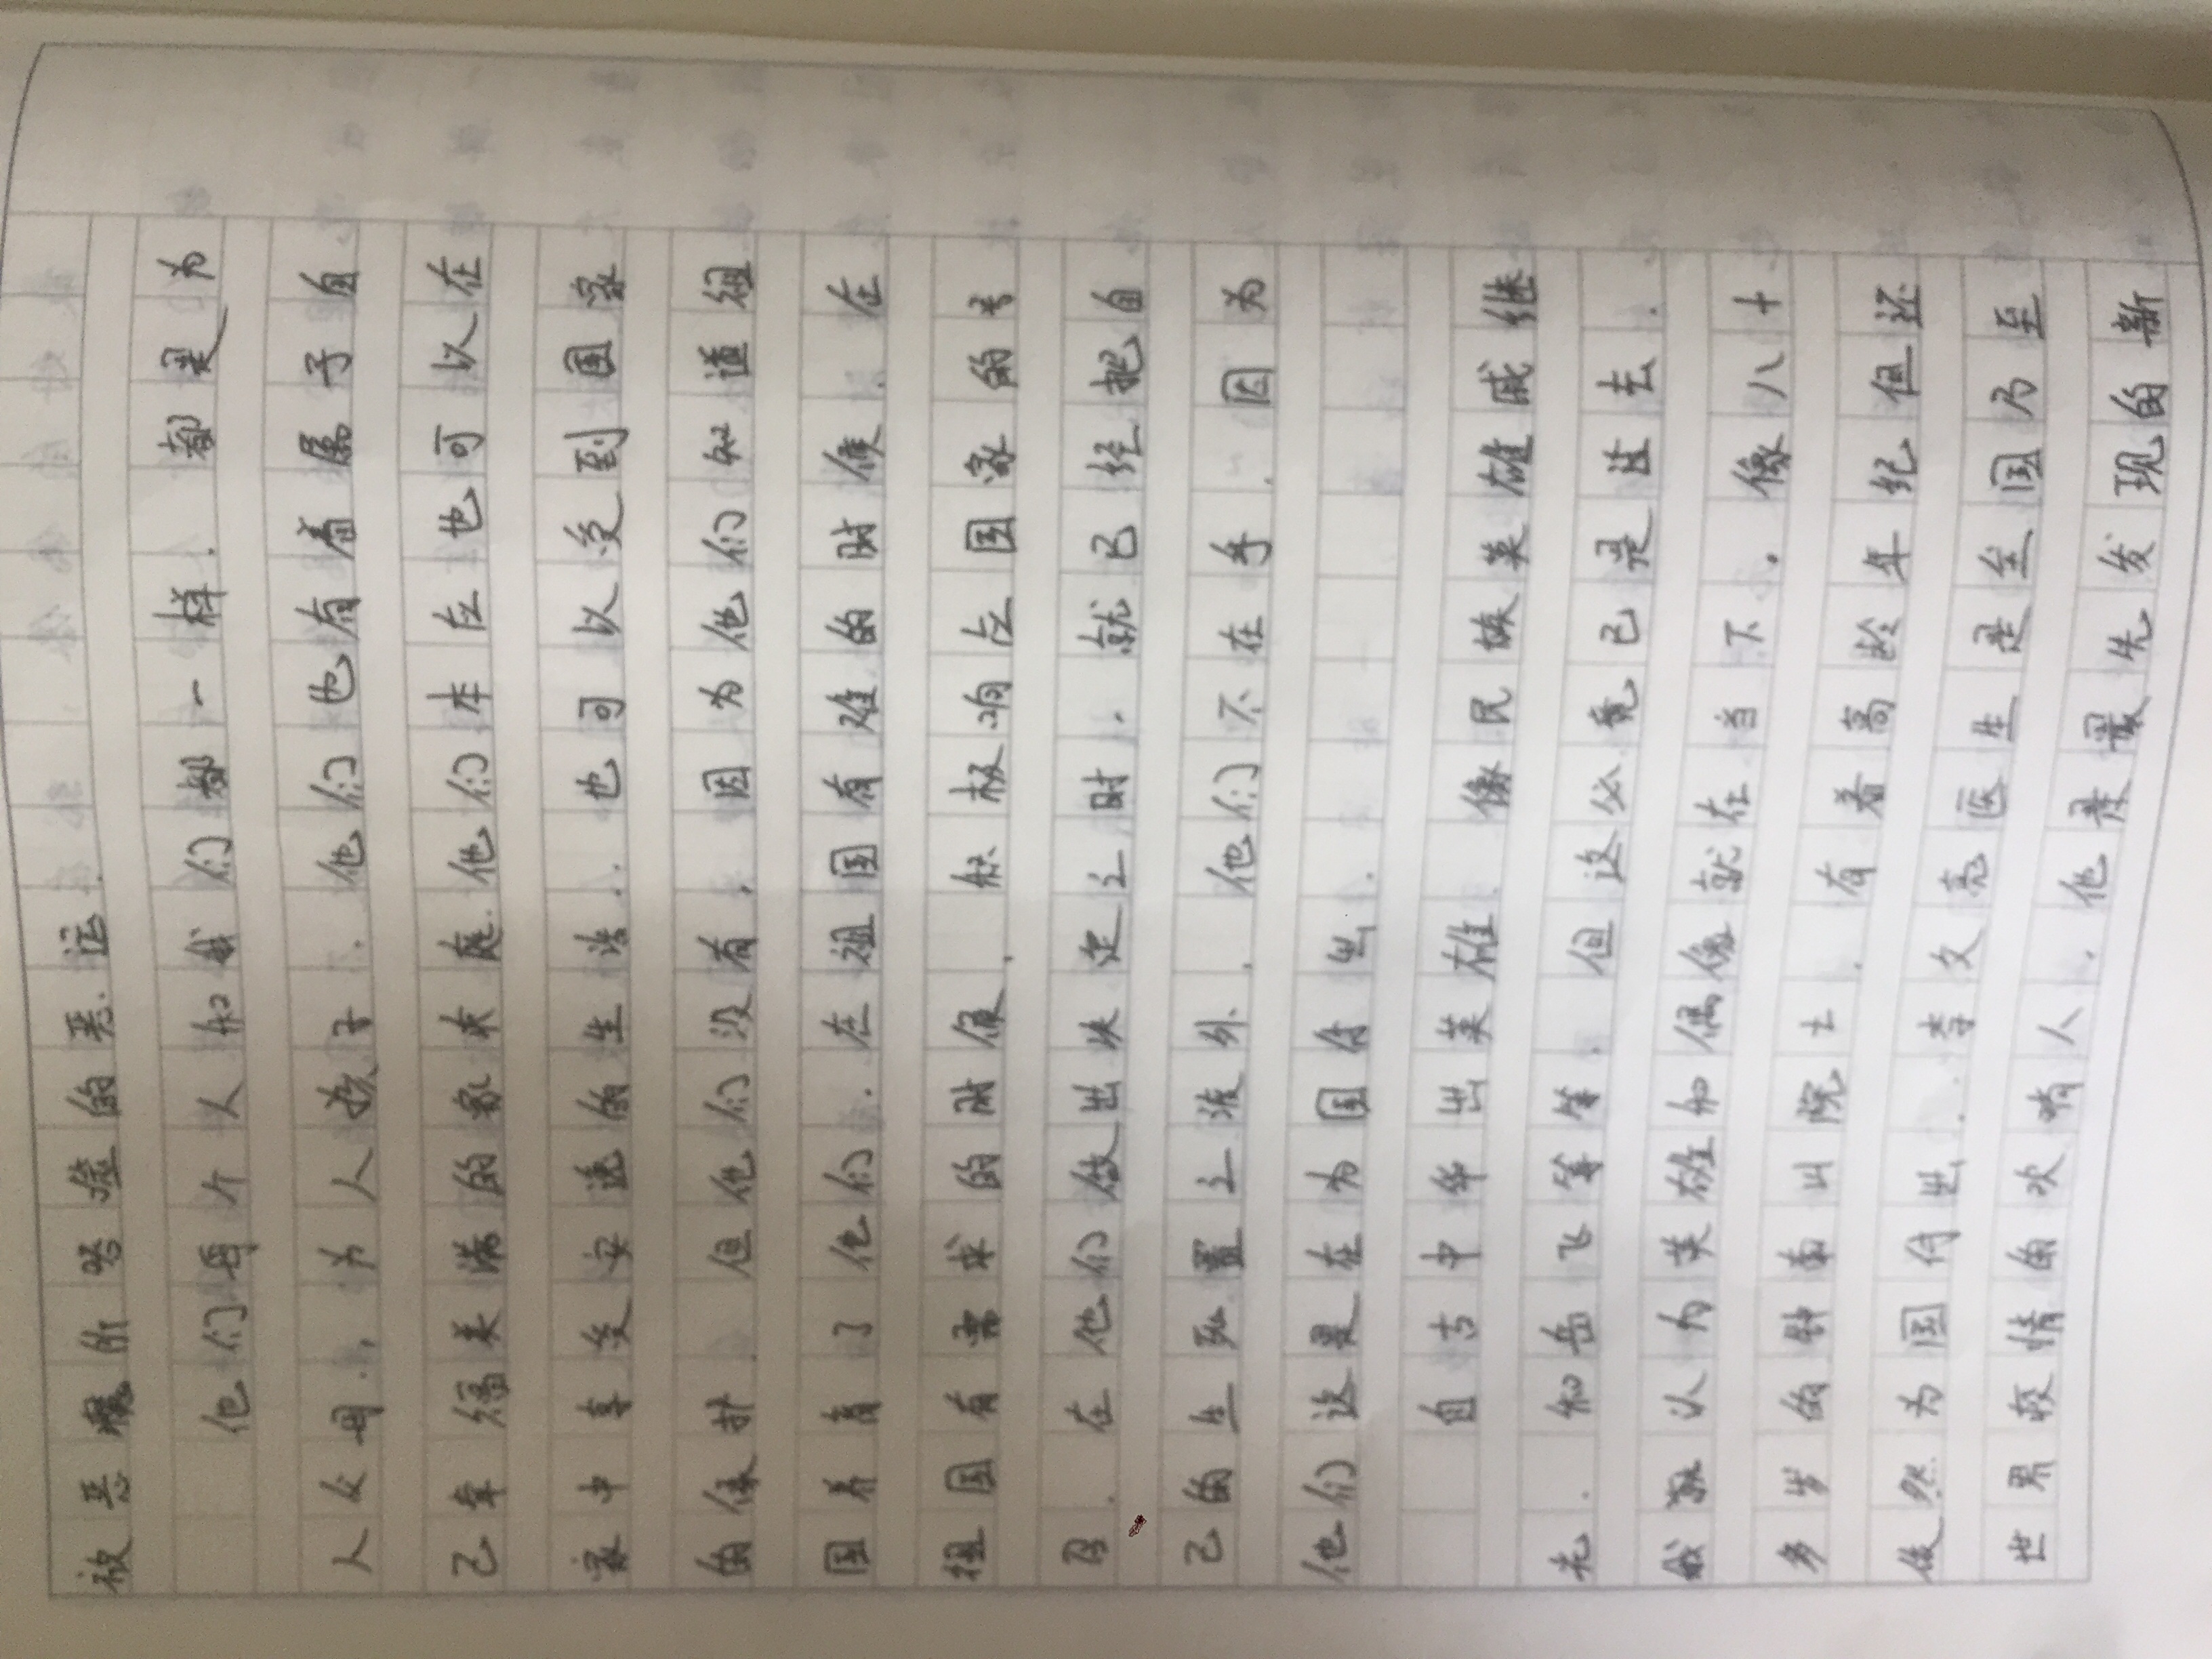 被恶魔所吞噬的恶运.
他们每个人和我们都一样.都是为
人父母.,为人孩子.他们也有着属于自
己幸福美满的家来庭.他们本应也可以在
家中享受安逸的生活..也可以受到国家
的保护.但他们没有,因为他们知道祖
国养育了他们.在祖国有难的时候.在
祖国有需求的时候,积极响应国家的号
召.在他们做出决定之时.就已经把自
己的生死置之渡外,他们不在乎.因为
他们这是在为国付出.
自古中华出英雄.像民族英雄戚继
光.和岳飞等等.但这必竟已是过去.
我认为英雄和偶像就在当下.像八十
多岁的钟南山院士.有着高龄年纪但还
依然为国付出..李文亮医生是至国乃至
世界疫情的吹哨人.他是最先发现的新